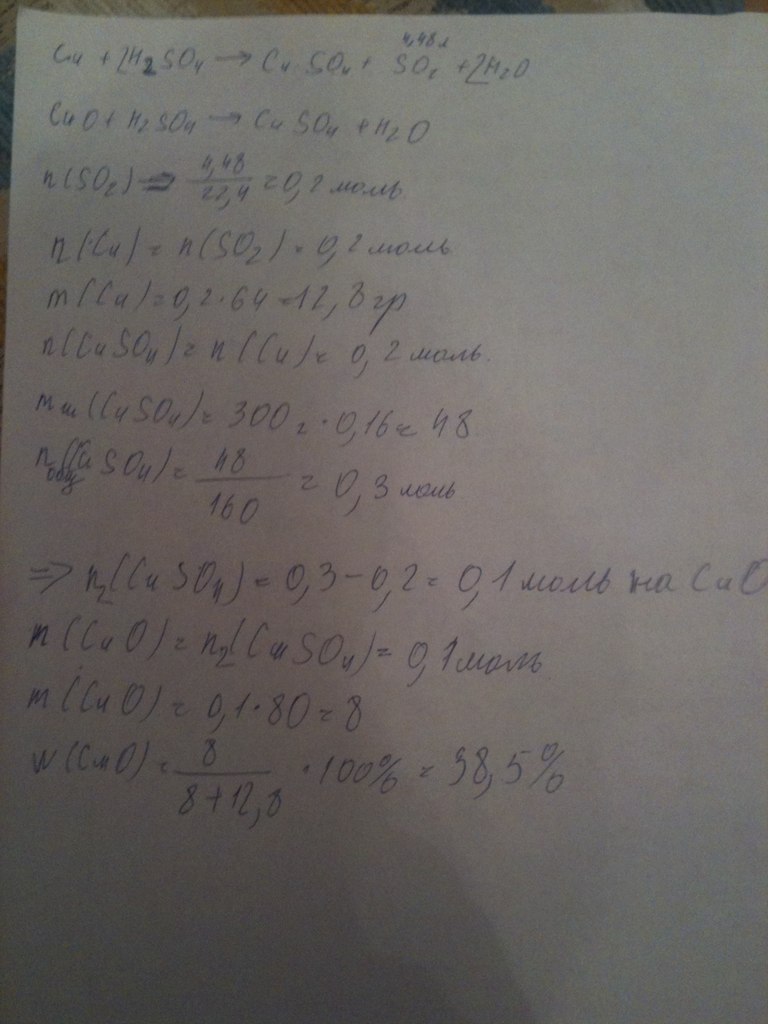 4,48л
Cu + 2H2SO4 → CuSO4 + SO2 + 2H2O
CuO + H2SO4 → CuSO4 + H2O
n(SO2) = 4,48 / 22,4 = 0,2 моль
n(Cu) = n(SO2) = 0,2 моль
m(Cu) = 0,2·64 = 12,8 гр
n(CuSO4) = n(Cu) = 0,2 моль.
m (CuSO4) = 300 г · 0,16 = 48
n общ (CuSO4) = 48 / 160 = 0,3 моль
⇒ n2(CuSO4) = 0,3 - 0,2 = 0,1 моль на CuO
n(CuO) = n2(CuSO4) = 0,1 моль
m(CuO) = 0,1·80 = 8
W(CuO) = 8 / 8+12,8 · 100% = 38,5%